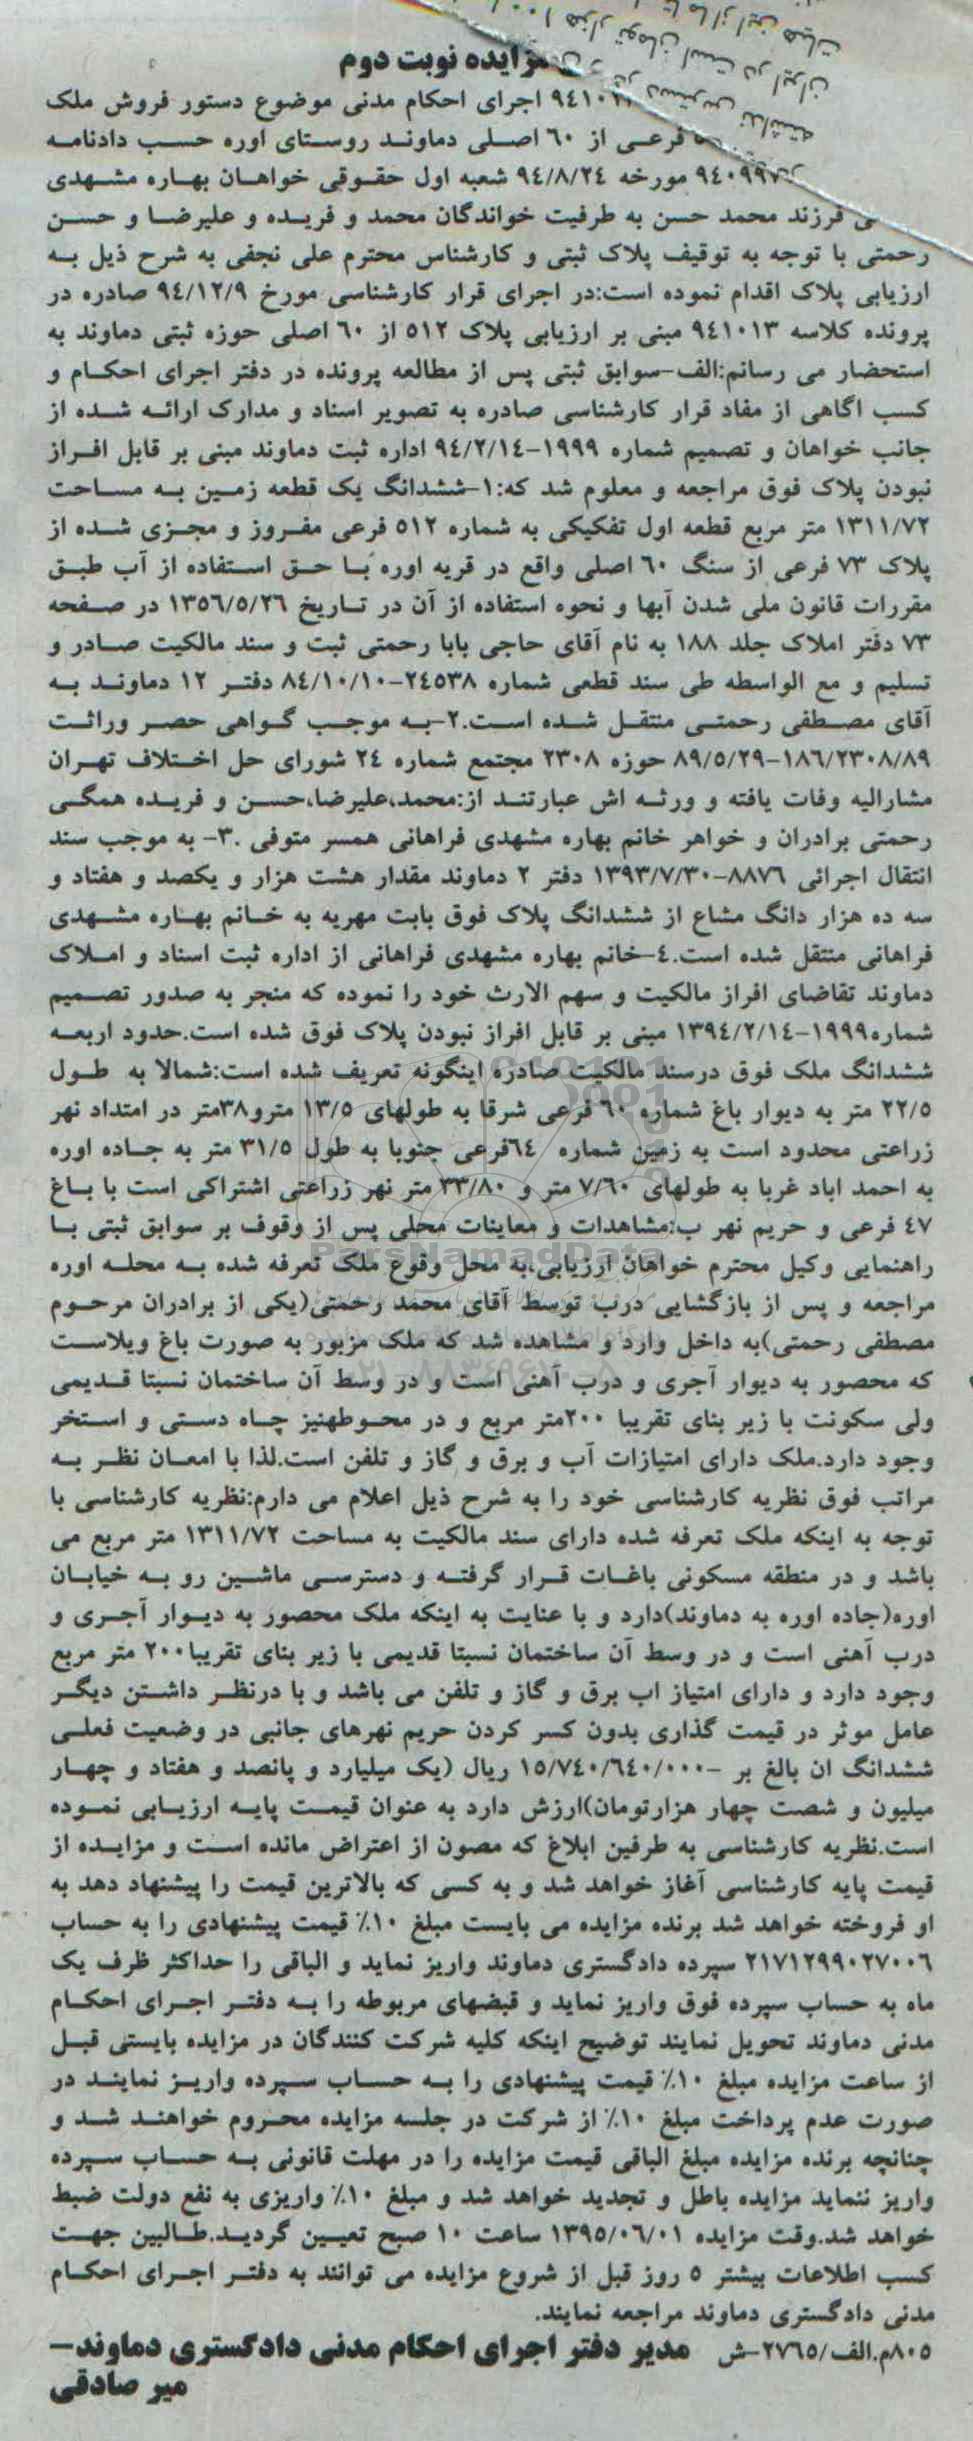 مزایده نوبت دوم
اجرای احکام مدنی موضوع دستور فروش ملک
فرعی از ٦٠ اصلی دماوند روستای اوره حسب دادنامه
مورخه ٩٤/٨/٢٤ شعبه اول حقوقی خواهان بهاره مشهدی
فرزند محمد حسن به طرفیت خواندگان محمد و فریده و علیرضا و حسن
رحمتی با توجه به توقیف پلاک ثبتی و کارشناس محترم علی نجفی به شرح ذیل به
ارزیابی پلاک اقدام نموده است:در اجرای قرار کارشناسی مورخ ٩٤/١٢/٩ صادره در
پرونده کلاسه ٩٤١٠١٣ مبنی بر ارزیابی پلاک ٥١٢ از ٦٠ اصلی حوزه ثبتی دماوند به
استحضار می رسانم:الف-سوابق ثبتی پس از مطالعه پرونده در دفتر اجرای احکام و
کسب اگاهی از مفاد قرار کارشناسی صادره به تصویر اسناد و مدارک ارائه شده از
جانب خواهان و تصمیم شماره ١٩٩٩-٩٤/٢/١٤ اداره ثبت دماوند مبنی بر قابل افراز
نبودن پلاک فوق مراجعه و معلوم شد که:١-ششدانگ یک قطعه زمین به مساحت
١٣١١/٧٢ متر مربع قطعه اول تفکیکی به شماره ٥١٢ فرعی مفروز و مجزی شده از
پلاک ٧٣ فرعی از سنگ ٦٠ اصلی واقع در قریه اوره با حق استفاده از آب طبق
مقررات قانون ملی شدن آبها و نحوه استفاده از آن در تاریخ ١٣٥٦/٥/٢٦ در صفحه
٧٣ دفتر املاک جلد ١٨٨ به نام آقای حاجی بابا رحمتی ثبت و سند مالکیت صادر و
تسلیم و مع الواسطه طی سند قطعی شماره ٢٤٥٣٨-٨٤/١٠/١٠ دفتر ١٢ دماوند به
آقای مصطفی رحمتی منتقل شده است.٢-به موجب گواهی حصر وراثت
١٨٦/٢٣٠٨/٨٩-٨٩/٥/٢٩ حوزه ٢٣٠٨ مجتمع شماره ٢٤ شورای حل اختلاف تهران
مشارالیه وفات یافته و ورثه اش عبارتند از:محمد،علیرضا،حسن و فریده همگی
رحمتی برادران و خواهر خانم بهاره مشهدی فراهانی همسر متوفی .٣- به موجب سند
انتقال اجرائی ٨٨٧٦-١٣٩٣/٧/٣٠ دفتر ٢ دماوند مقدار هشت هزار و یکصد و هفتاد و
سه ده هزار دانگ مشاع از ششدانگ پلاک فوق بابت مهریه به خانم بهاره مشهدی
فراهانی منتقل شده است.٤-خانم بهاره مشهدی فراهانی از اداره ثبت اسناد و املاک
دماوند تقاضای افراز مالکیت و سهم الارث خود را نموده که منجر به صدور تصمیم
شماره١٩٩٩-١٣٩٤/٢/١٤ مبنی بر قابل افراز نبودن پلاک فوق شده است.حدود اربعه
ششدانگ ملک فوق درسند مالکیت صادره اینگونه تعریف شده است:شمالا به طول
٢٢/٥ متر به دیوار باغ شماره ٦٠ فرعی شرقا به طولهای ١٣/٥ مترو٣٨متر در امتداد نهر
زراعتی محدود است به زمین شماره ٦٤فرعی جنوبا به طول ٣١/٥ متر به جاده اوره
به احمد اباد غربا به طولهای ٧/٦٠ متر و ٣٣/٨٠ متر نهر زراعتی اشتراکی است با باغ
٤٧ فرعی و حریم نهر ب:مشاهدات و معاینات محلی پس از وقوف بر سوابق ثبتی با
راهنمایی وکیل محترم خواهان ارزیابی،به محل وقوع ملک تعرفه شده به محله اوره
مراجعه و پس از بازگشایی درب توسط آقای محمد رحمتی(یکی از برادران مرحوم
مصطفی رحمتی)به داخل وارد و مشاهده شد که ملک مزبور به صورت باغ ویلاست
که محصور به دیوار آجری و درب آهنی است و در وسط آن ساختمان نسبتا قدیمی
ولی سکونت با زیر بنای تقریبا ٢٠٠متر مربع و در محوطهنیز چاه دستی و استخر
وجود دارد.ملک دارای امتیازات آب و برق و گاز و تلفن است.لذا با امعان نظر به
مراتب فوق نظریه کارشناسی خود را به شرح ذیل اعلام می دارم:نظریه کارشناسی با
توجه به اینکه ملک تعرفه شده دارای سند مالکیت به مساحت ١٣١١/٧٢ متر مربع می
باشد و در منطقه مسکونی باغات قرار گرفته و دسترسی ماشین رو به خیابان
اوره(جاده اوره به دماوند)دارد و با عنایت به اینکه ملک محصور به دیوار آجری و
درب آهنی است و در وسط آن ساختمان نسبتا قدیمی با زیر بنای تقریبا٢٠٠ متر مربع
وجود دارد و دارای امتیاز اب برق و گاز و تلفن می باشد و با درنظر داشتن دیگر
عامل موثر در قیمت گذاری بدون کسر کردن حریم نهرهای جانبی در وضعیت فعلی
ششدانگ ان بالغ بر -١٥/٧٤٠/٦٤٠/٠٠٠ ریال (یک میلیارد و پانصد و هفتاد و چهار
میلیون و شصت چهار هزارتومان)ارزش دارد به عنوان قیمت پایه ارزیابی نموده
است.نظریه کارشناسی به طرفین ابلاغ که مصون از اعتراض مانده است و مزایده از
قیمت پایه کارشناسی آغاز خواهد شد و به کسی که بالاترین قیمت را پیشنهاد دهد به
او فروخته خواهد شد برنده مزایده می بایست مبلغ ١٠٪ قیمت پیشنهادی را به حساب
٢١٧١٢٩٩٠٢٧٠٠٦ سپرده دادگستری دماوند واریز نماید و الباقی را حداکثر ظرف یک
ماه به حساب سپرده فوق واریز نماید و قبضهای مربوطه را به دفتر اجرای احکام
مدنی دماوند تحویل نمایند توضیح اینکه کلیه شرکت کنندگان در مزایده بایستی قبل
از ساعت مزایده مبلغ ١٠٪ قیمت پیشنهادی را به حساب سپرده واریز نمایند در
صورت عدم پرداخت مبلغ ١٠٪ از شرکت در جلسه مزایده محروم خواهند شد و
چنانچه برنده مزایده مبلغ الباقی قیمت مزایده را در مهلت قانونی به حساب سپرده
واریز ننماید مزایده باطل و تجدید خواهد شد و مبلغ ١٠٪ واریزی به نفع دولت ضبط
خواهد شد.وقت مزایده ١٣٩٥/٠٦/٠١ ساعت ١٠ صبح تعیین گردید.طالبین جهت
کسب اطلاعات بیشتر ٥ روز قبل از شروع مزایده می توانند به دفتر اجرای احکام
مدنی دادگستری دماوند مراجعه نمایند.
٨٠٥م.الف/٢٧٦٥-ش مدیر دفتر اجرای احکام مدنی دادگستری دماوند-
میر صادقی
ParsNamadData